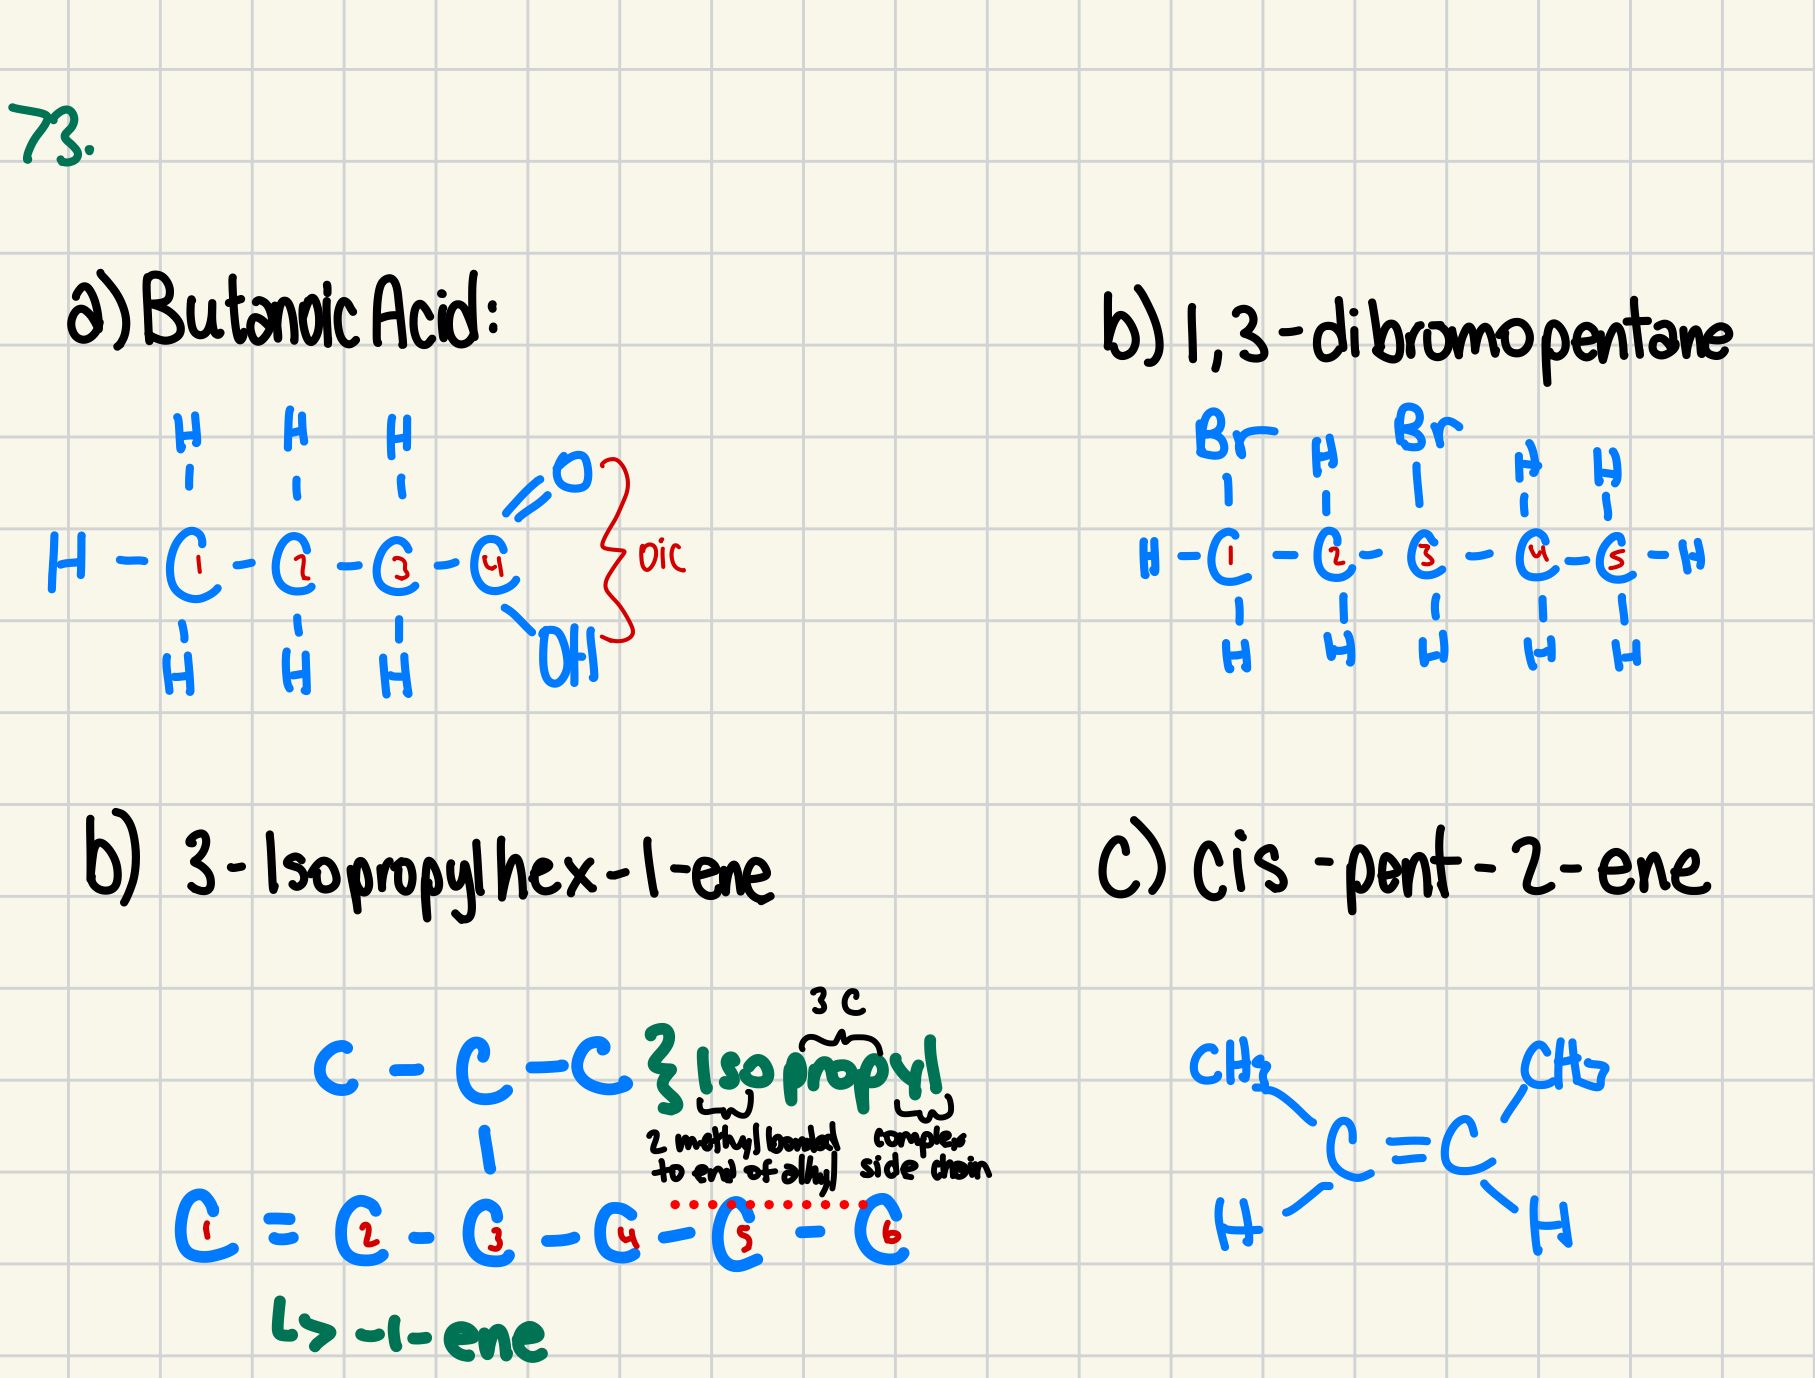 73.
a) Butanoic Acid:
H H H
O
H - C1 - C2 - C3 - C4
oic
OH
H H H
b) 1,3-dibromopentane
Br H Br H H
H - C1 - C2 - C3 - C4 - C5 - H
H H H H H
b) 3-Isopropylhex-1-ene
3 C
C - C - C } Isopropyl
2 methyl bonded
to end of alkyl
complex
side chain
C1 = C2 - C3 - C4 - C5 - C6
↳> -1-ene
c) cis-pent-2-ene
CH3 CH3
C = C
H H